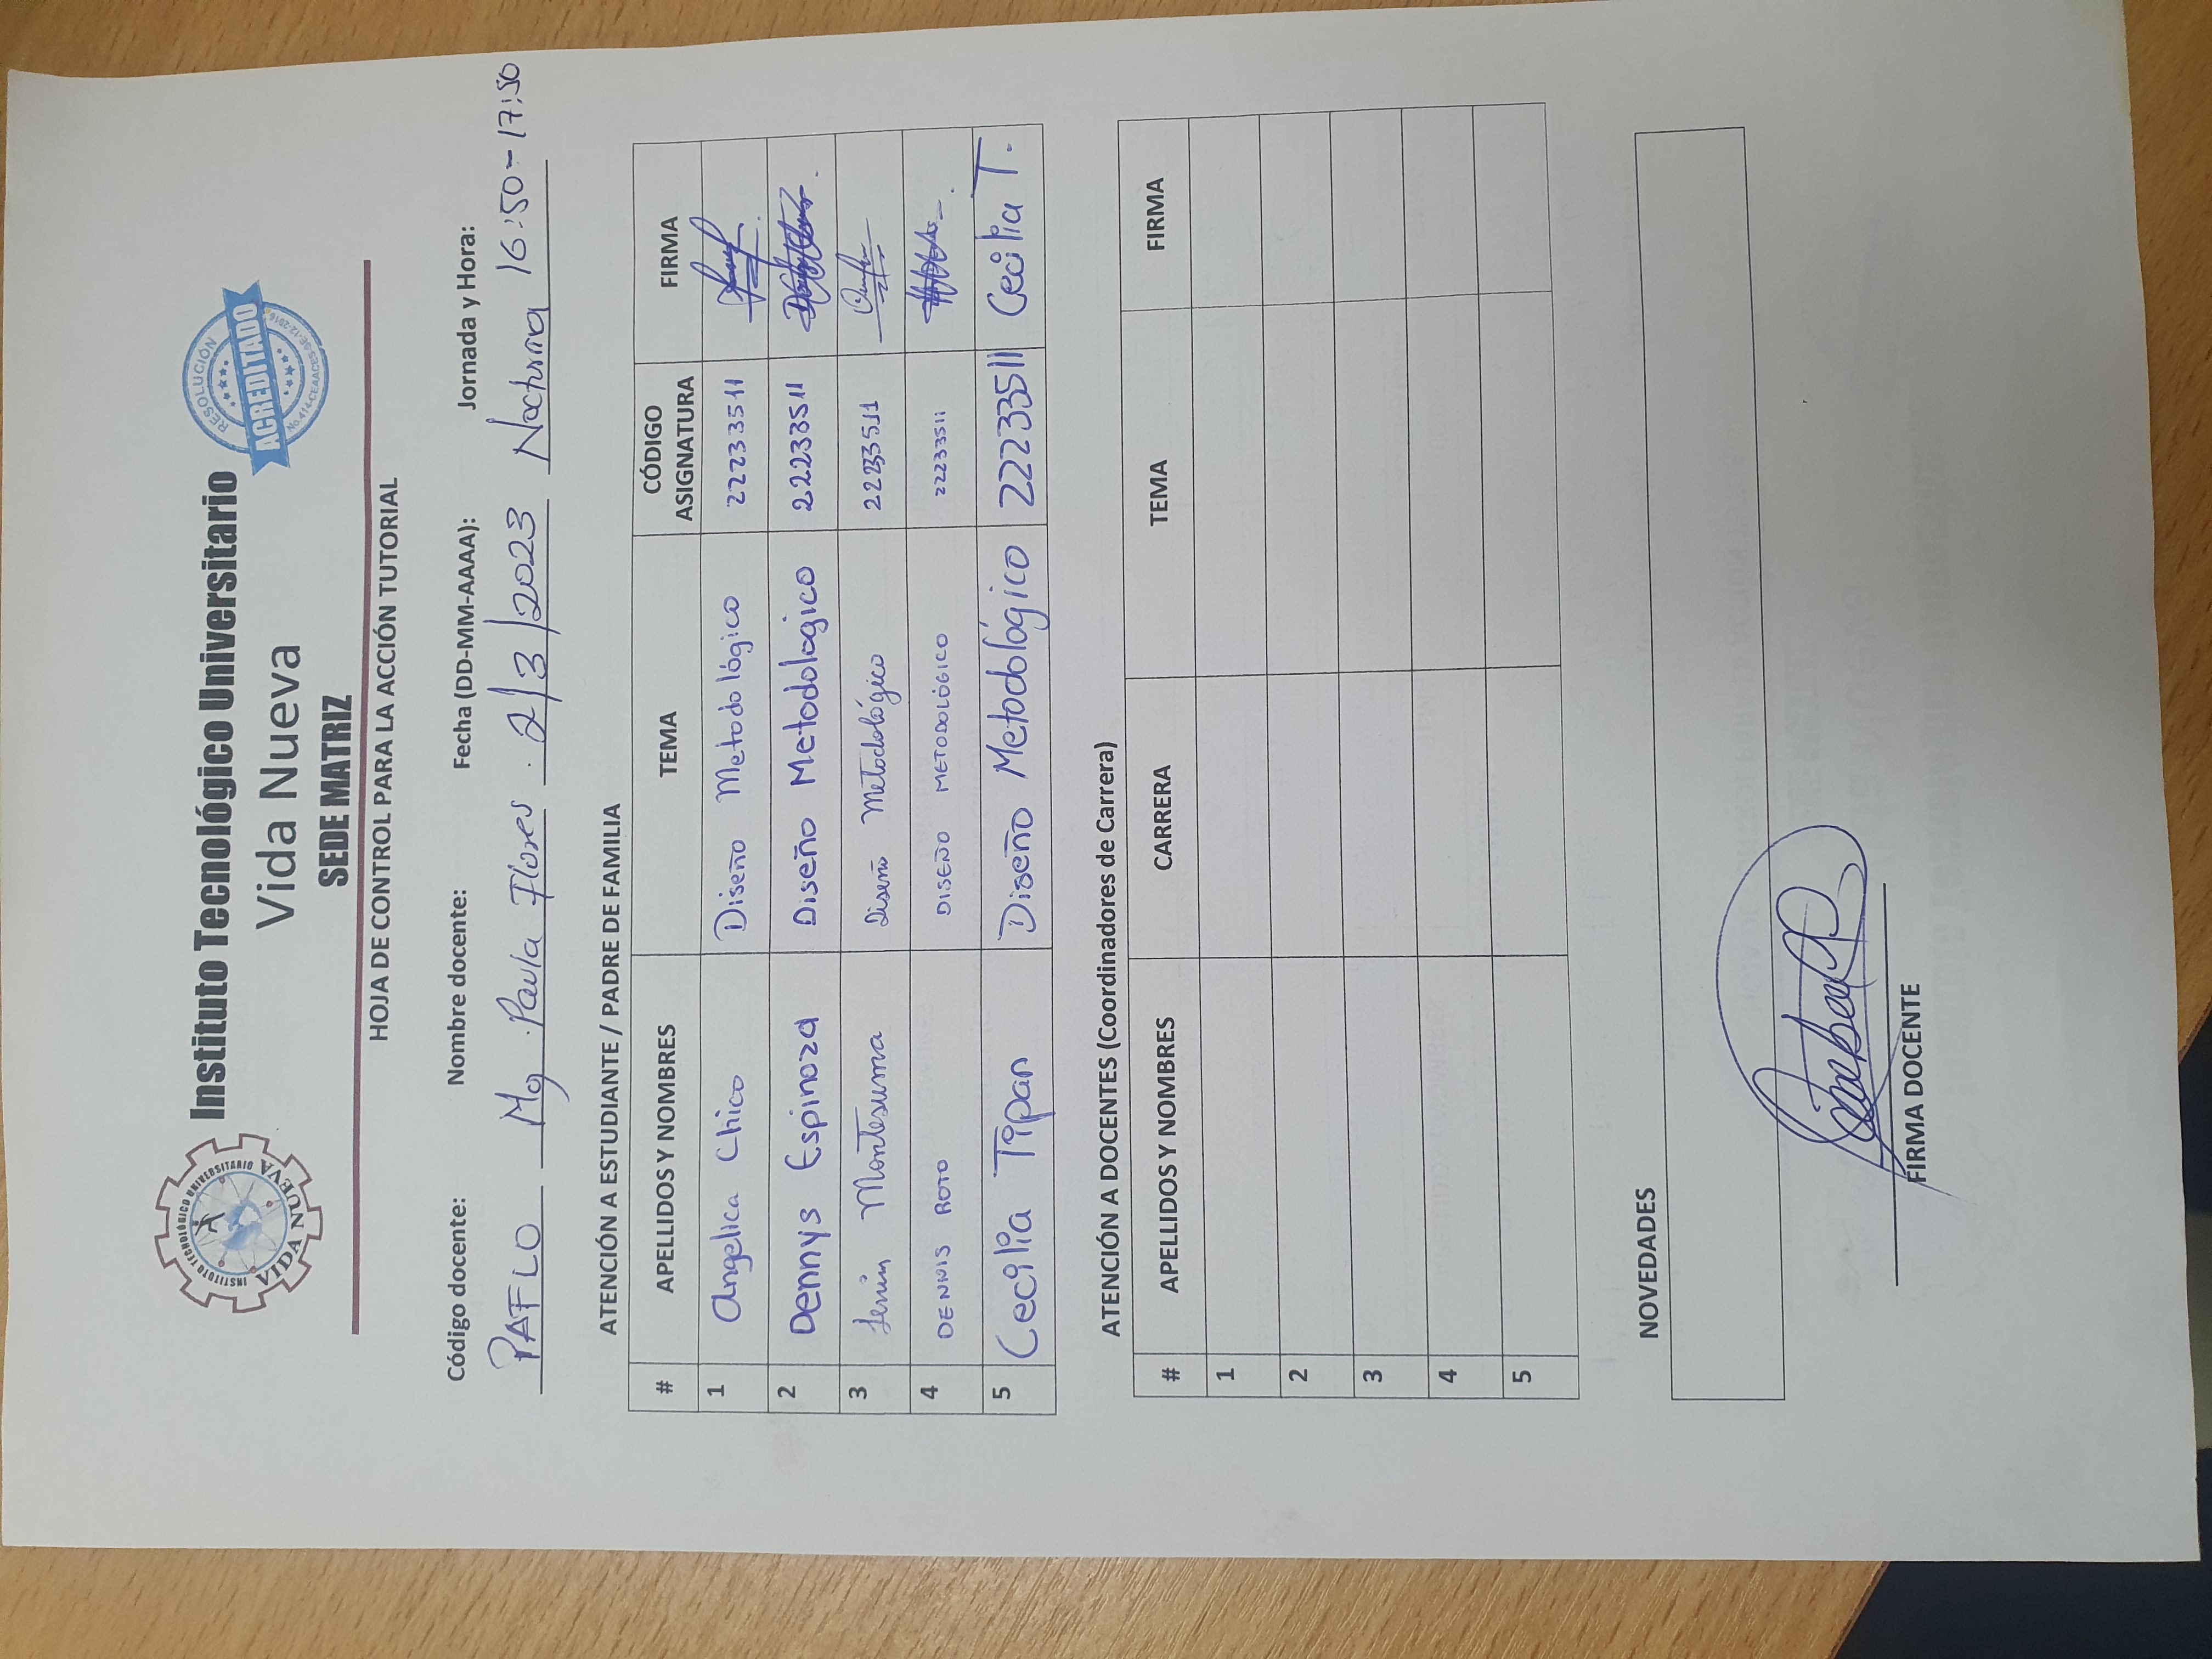 INSTITUTO TECNOLÓGICO UNIVERSITARIO
VIDA NUEVA
Instituto Tecnológico Universitario
Vida Nueva
SEDE MATRIZ
RESOLUCIÓN
ACREDITADO
No.414-CEAACES-SE-12-2016
HOJA DE CONTROL PARA LA ACCIÓN TUTORIAL
Código docente: Nombre docente: Fecha (DD-MM-AAAA): Jornada y Hora:
PAFLO Mg. Paula Flores. 2/3/2023 Nocturna 16:50-17:50
ATENCIÓN A ESTUDIANTE / PADRE DE FAMILIA
# APELLIDOS Y NOMBRES TEMA CÓDIGO ASIGNATURA FIRMA
1 Angelica Chico Diseño Metodológico 22233511
2 Dennys Espinoza Diseño Metodologico 22233511
3 Lenin Montesuma Diseño Metodológico 22233511
4 DENNIS ROTO DISEÑO METODOLÓGICO 22233511
5 Cecilia Tipan Diseño Metodológico 22233511 Cecilia T.
ATENCIÓN A DOCENTES (Coordinadores de Carrera)
# APELLIDOS Y NOMBRES CARRERA TEMA FIRMA
1
2
3
4
5
NOVEDADES
FIRMA DOCENTE